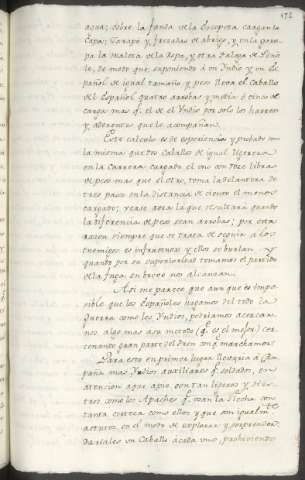 172
agua; sobre la funda de la Escopeta cargan la
Capa, Tarapé y frezadas de abrigo, y en la garu-
pa la maleta de la ropa, y otra talega de Pino-
le, de modo que suponiendo á un Yndio y un Es-
pañol de igual tamaño y peso lleva el Caballo
del Español quatro arrobas y media ó cinco de
carga mas qe. el de el Yndio por solo los harreos
y aderentes que le acompañan.
Este calculo es de esperiencia y probado con
la misma que dos Caballos de igual ligereza
en la Carrera cargado el uno con doze libras
de peso mas que el otro, toma la delantera de
tres pasos en la distancia de ciento el menos
cargado; vease aora la que resultará quando
la diferencia de peso sean arrobas; por esta
razon siempre que se trata de seguir a los
Enemigos es infructuosa y ellos se burlan y
quando por su superioridad tomamos el partido
de la fuga en breve nos alcanzan.
Asi me parece que aun que es impo-
sible que los Españoles hagamos del todo la
Guerra como los Yndios, podriamos acercar-
nos algo mas a su metodo (qe. es el mejor) cer-
cenando gran parte del tren con qe. marchamos
Para esto en primer lugar llevaria á Cam-
paña mas Yndios auxiliares qe. soldados, en
atencion aque á pie son tan ligeros y dies-
tros como los Apaches qe. usan la flecha con
tanta certeza como ellos y que son igualmte.
astutos en el modo de explorar y sorprender
Darlales un Caballo á cada uno, prohiviendo